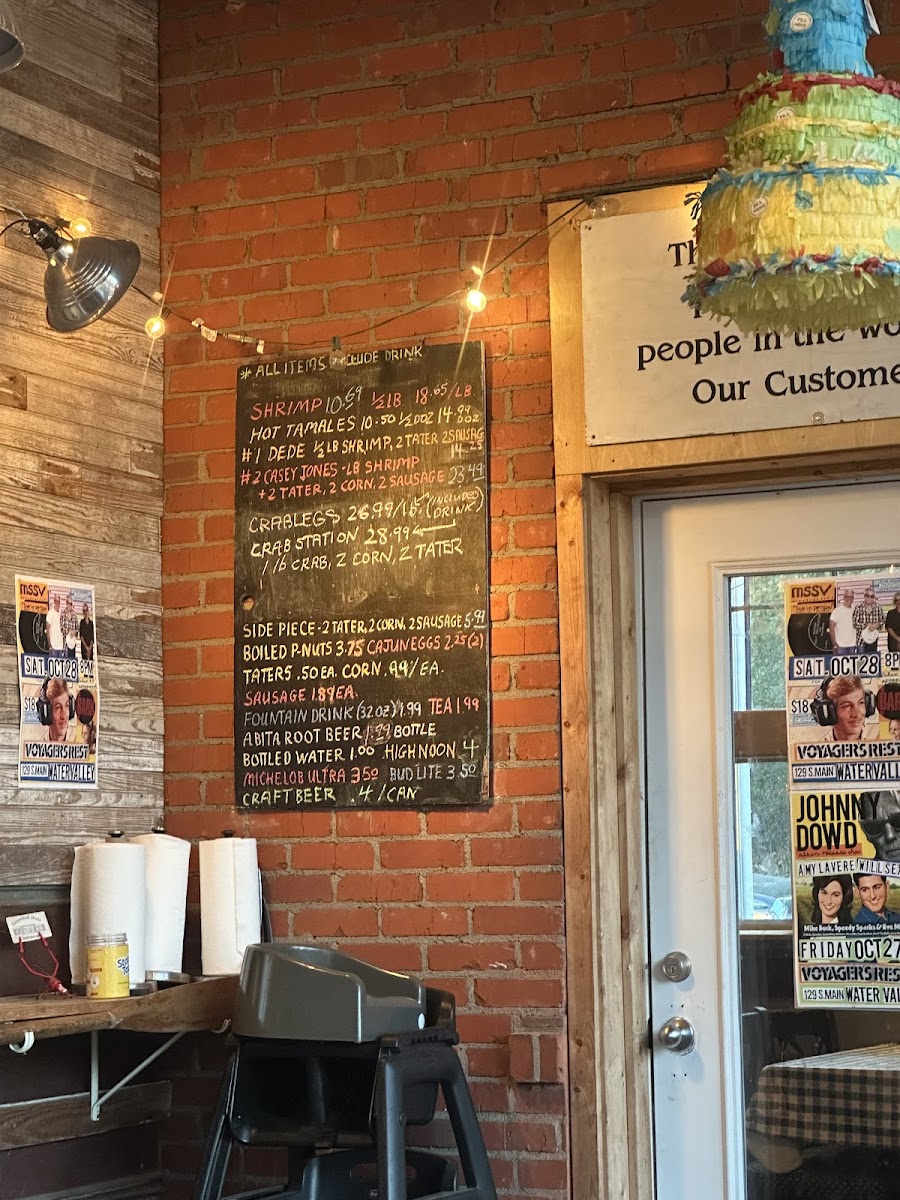 * ALL ITEMS INCLUDE DRINK
SHRIMP 10.69 ½ LB 18.65/LB
HOT TAMALES 10.50 ½ DOZ 14.99 DOZ
#1 DEDE ½ LB SHRIMP, 2 TATER 2 SAUSAG
14.25
#2 CASEY JONES - LB SHRIMP
+ 2 TATER, 2 CORN, 2 SAUSAGE 23.49
CRABLEGS 26.99/LB. (INCLUDES DRINK)
CRAB STATION 28.99
1 lb CRAB, 2 CORN, 2 TATER
SIDE PIECE - 2 TATER, 2 CORN, 2 SAUSAGE 5.99
BOILED P-NUTS 3.75 CAJUN EGGS 2.25 (2)
TATERS .50 EA. CORN .99/EA.
SAUSAGE 1.89 EA.
FOUNTAIN DRINK (32 OZ) 1.99 TEA 1.99
ABITA ROOT BEER 1.99 BOTTLE
BOTTLED WATER 1.00 HIGH NOON 4
MICHELOB ULTRA 3.50 BUD LITE 3.50
CRAFT BEER .4/CAN
Th
people in the wo
Our Custome
MSSV
SAT. OCT 28 8PM
$18
VOYAGERS REST
129 S. MAIN WATER VALLEY
MSSV
SAT. OCT 28 8P
$18
VOYAGERS REST
129 S. MAIN WATER VALL
JOHNNY
DOWD
AMY LAVERE WILL SEX
FRIDAY OCT 27
VOYAGERS RES
129 S. MAIN WATER VAL